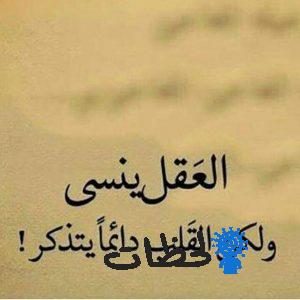 العَقل ينسى
ولكن القَلب دائماً يتذكر !
لحظات